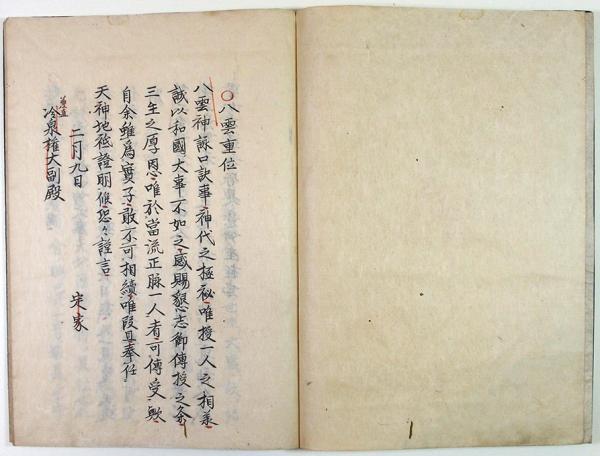 〇八雲重位
八雲神詠口訣事神代之極秘唯授一人之相承
誠以和國大事不如之感賜懇志御傳授之条
三生之厚恩唯於當流正脉一人者可傳受歟
自余雖爲實子敢不可相續唯段且奉任
天神地祇證明候恐々謹言
二月九日 宗家
兼直
冷泉權大副殿